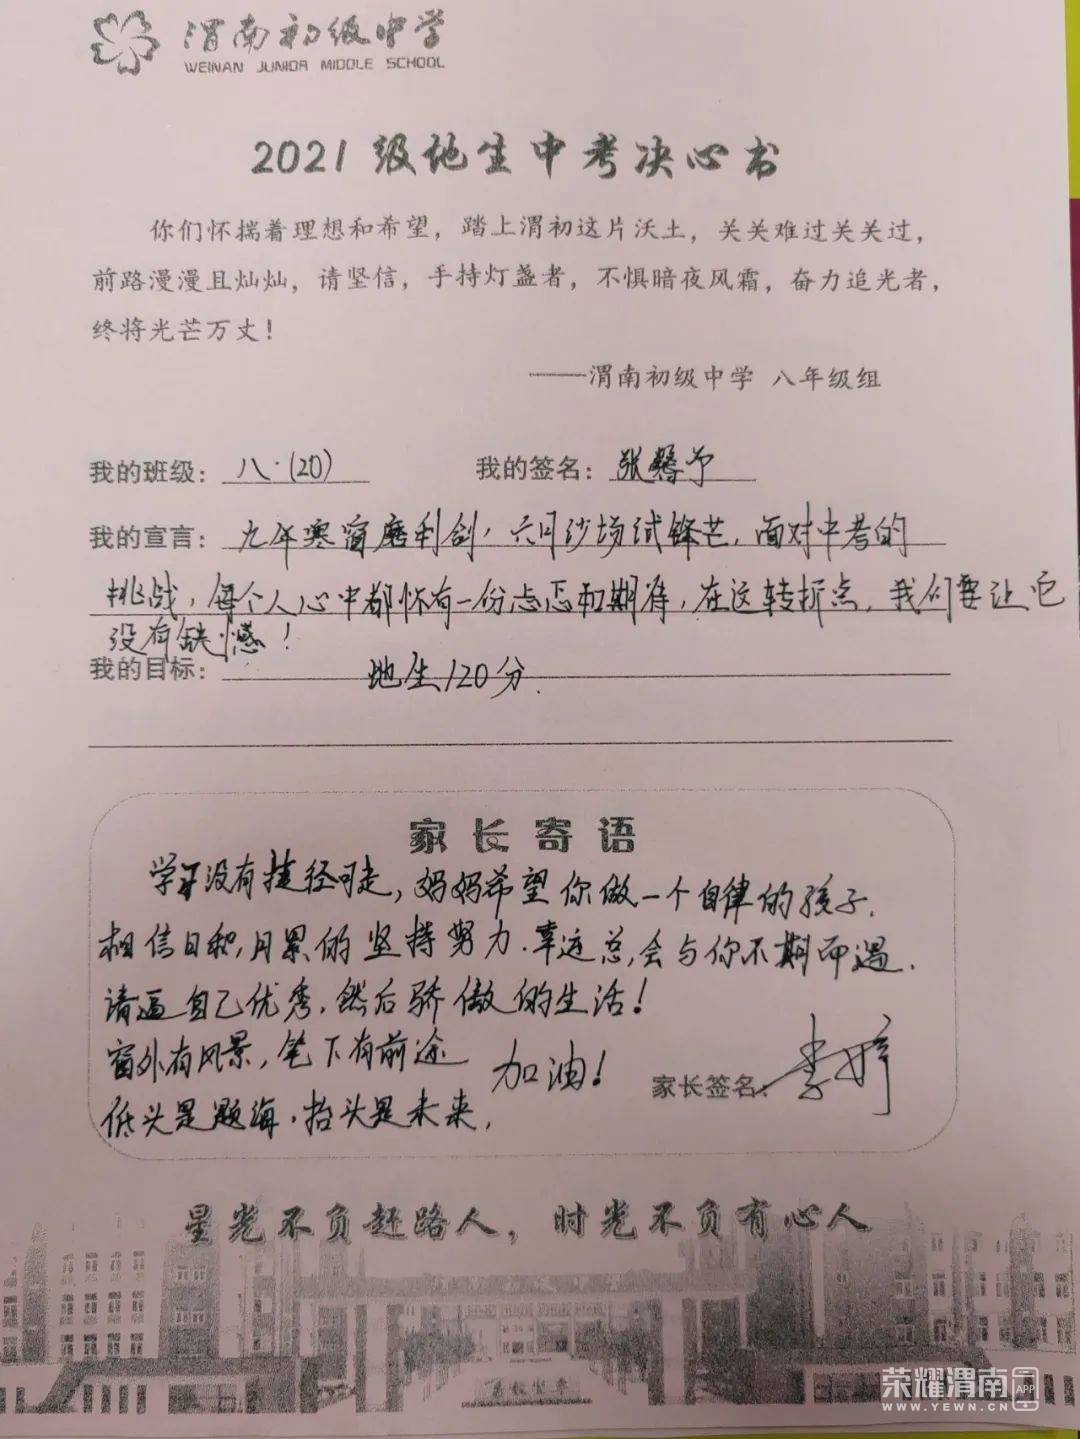 渭南初级中学
WEINAN JUNIOR MIDDLE SCHOOL
2021级地生中考决心书
你们怀揣着理想和希望，踏上渭初这片沃土，关关难过关关过，
前路漫漫且灿灿，请坚信，手持灯盏者，不惧暗夜风霜，奋力追光者，
终将光芒万丈！
——渭南初级中学 八年级组
我的班级：八·(20) 我的签名：张馨予
我的宣言：九年寒窗磨利剑，六月沙场试锋芒，面对中考的
挑战，每个人心中都怀有一份忐忑和期待，在这转折点，我们要让它
没有缺憾！
我的目标：地生120分.
家长寄语
学习没有捷径可走，妈妈希望你做一个自律的孩子.
相信日积月累的坚持努力.幸运总会与你不期而遇.
请逼自己优秀，然后骄傲的生活！
窗外有风景，笔下有前途
低头是题海，抬头是未来，
加油！
家长签名：李
星光不负赶路人，时光不负有心人
荣耀渭南 APP
WWW.YEWN.CN